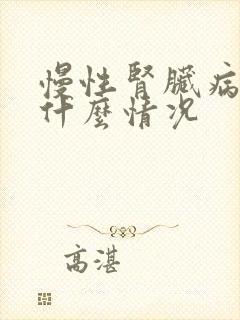 慢性腎臟病
什麼情況
高湛